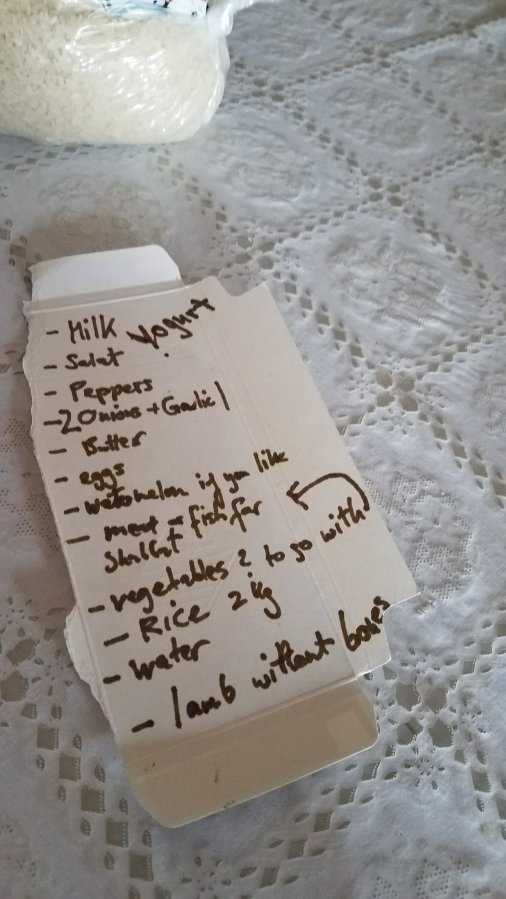 - Milk Yogurt
- Salat
- Peppers
- 2 Onions + Garlic 1
- Butter
- eggs
- watermelon if you like
- meat - fish for
- vegetables 2 to go with
- Rice 2 kg
- water
- lamb without bones